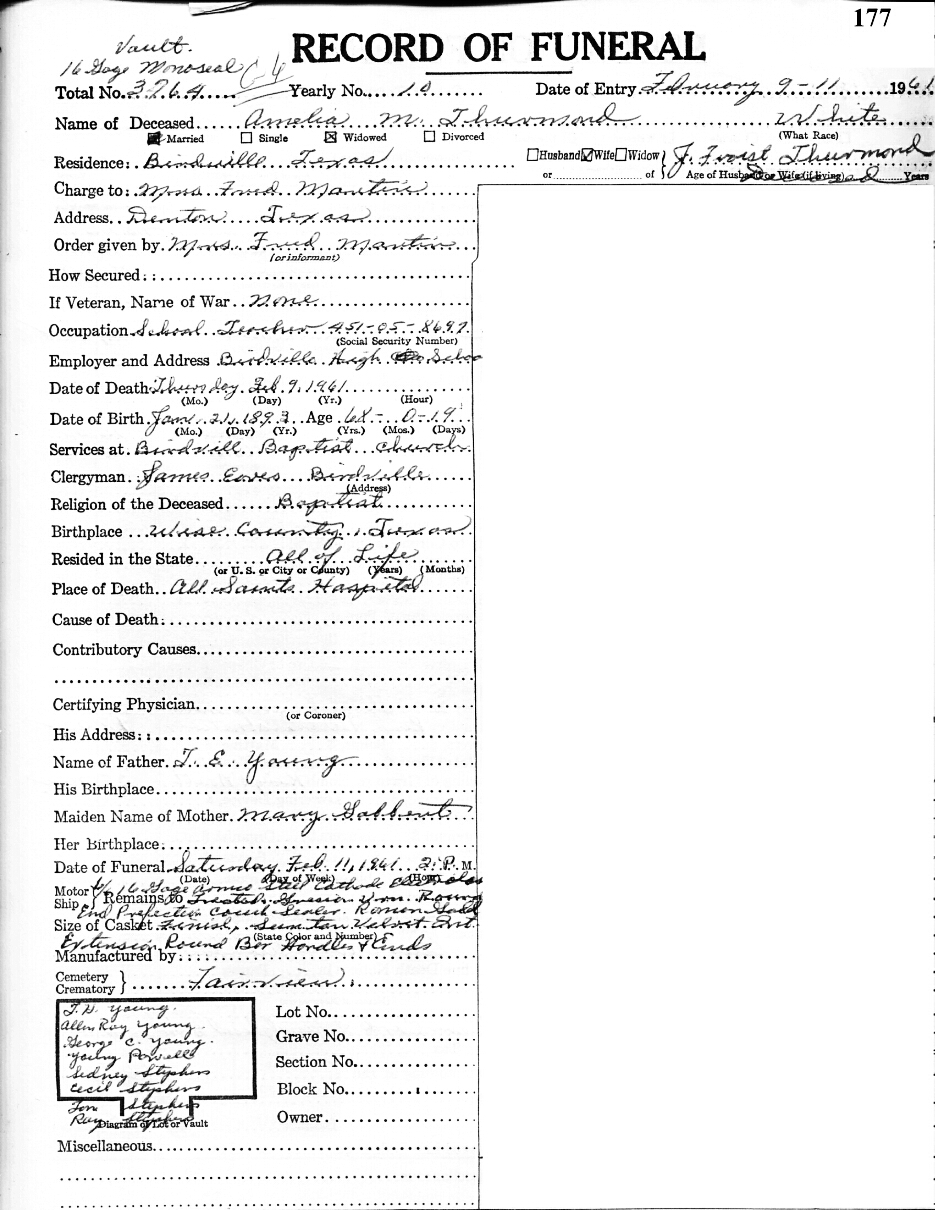 177
Vault.
16 Gage Monoseal
RECORD OF FUNERAL
Total No. 3764 Yearly No. 10 Date of Entry February 9-11 1961
Name of Deceased Amelia M. Thurmond White
Married Single Widowed Divorced (What Race)
Residence: Birdville Texas Husband Wife Widow J. Foist Thurmond
or of Age of Husband or Wife (if living) Years
Charge to: Mrs. Fred Martin
Address Denton Texas
Order given by Mrs. Fred Martin
(or informant)
How Secured
If Veteran, Name of War None
Occupation School Teacher 451-05-8697
(Social Security Number)
Employer and Address Birdville High
Date of Death Thursday Feb. 9, 1961
(Mo.) (Day) (Yr.) (Hour)
Date of Birth Jan. 21, 1893 Age 68-0-19
(Mo.) (Day) (Yr.) (Yrs.) (Mos.) (Days)
Services at Birdvill Baptist Church
Clergyman James Eaves Birdville
(Address)
Religion of the Deceased Baptist
Birthplace Wise County, Texas
Resided in the State All of Life
(or U. S. or City or County) (Years) (Months)
Place of Death All Saints Hospital
Cause of Death
Contributory Causes
Certifying Physician
(or Coroner)
His Address
Name of Father T. E. Young
His Birthplace
Maiden Name of Mother Mary Gabbert
Her Birthplace
Date of Funeral Saturday Feb. 11, 1961 2: P. M.
(Date) (Day of Week) (Hour)
Motor 16 Gage Armco Steel Cathode
Ship Remains to Treated Round
End Perfection Couch Sealer Roman Gold
Size of Casket Finish, Sun tan Velvet Int.
(State Color and Number)
Extension Round Bar Handles & Ends
Manufactured by
Cemetery
Crematory Fairview
T. D. Young
Allen Ray Young
George C. Young
Young Powell
Sidney Stephens
Cecil Stephens
Tom Stephens
Ray Stephens
Diagram of Lot or Vault
Lot No.
Grave No.
Section No.
Block No.
Owner
Miscellaneous